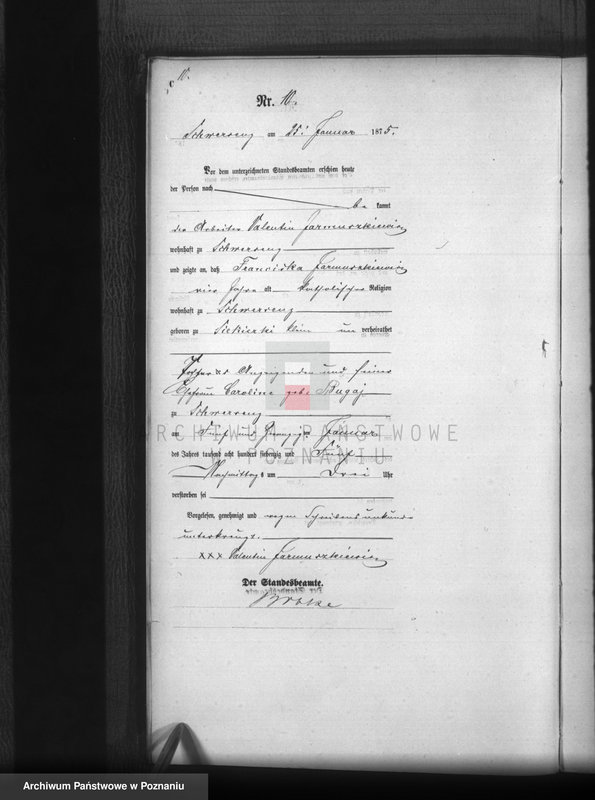 10.
Nr. 10.
Schwersenz am 25ten Januar 1875.
Vor dem unterzeichneten Standesbeamten erschien heute
der Person nach
be kannt
der Arbeiter Valentin Jarmuszkiewicz
wohnhaft zu Schwersenz
und zeigte an, daß Franciska Jarmuszkiewicz
vier Jahre alt Katholischer Religion
wohnhaft zu Schwersenz
geboren zu Siekierki klein un verheirathet
Tochter des Anzeigenden und seiner
Ehefrau Caroline geb: Bugaj
zu Schwersenz
am Fünf und zwanzigsten Januar
des Jahres tausend acht hundert siebenzig und Fünf
Nachmittag s um Drei Uhr
verstorben sei
Vorgelesen, genehmigt und wegen Schreibensunkunde
unterkreuzt.
xxx Valentin Jarmuszkiewicz
Der Standesbeamte.
ARCHIWUM PAŃSTWOWE
W POZNANIU
Archiwum Państwowe w Poznaniu